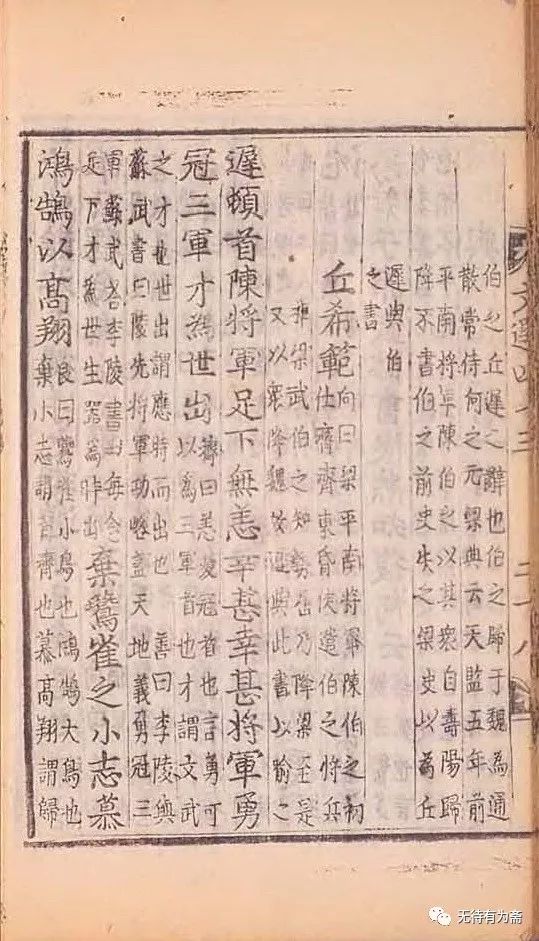 文選四十三 二十八
伯之丘遲之辭也伯之歸于魏為通
散常侍何之元梁典云天監五年前
平南將軍陳伯之以其衆自壽陽歸
降不書伯之前史失之梁史以為丘
遲與伯
之書
丘希範 向曰梁平南將軍陳伯之初
仕齊齊東昏侯遣伯之將兵
拒梁武伯之知勢乃降梁至是
又以衆降魏故遲與此書以喻之
遲頓首陳將軍足下無恙幸甚幸甚將軍勇
冠三軍才為世出 濟曰恙憂冠首也言勇可
以為三軍首也才謂文武
之才也世出謂應時而出也 善曰李陵與
蘇武書曰陵先將軍功略蓋天地義勇冠三
軍蘇武荅李陵書曰每念
足下才為世生器為時出 棄鷰雀之小志慕
鴻鵠以高翔 良曰鷰雀小鳥也鴻鵠大鳥也
棄小志謂背齊也慕高翔謂歸
无待有为斋